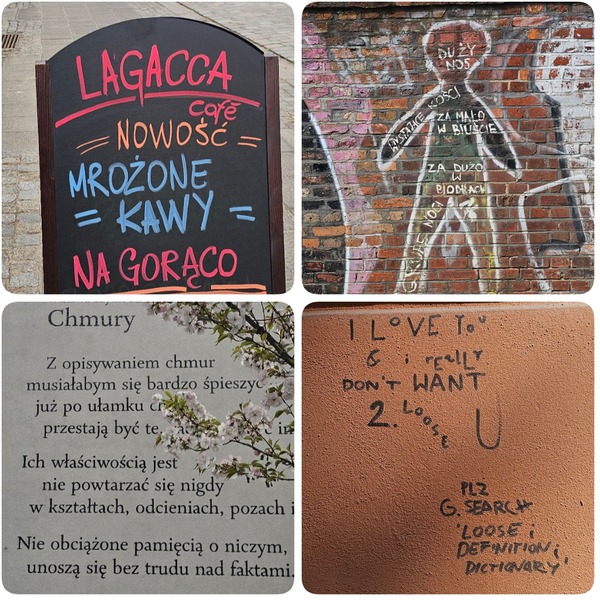 LAGACCA
café
NOWOŚĆ
MROŻONE
= KAWY =
NA GORĄCO
DUŻY
NOS
KOŚCI
ZA MAŁO
W BIUŚCIE
ZA DUŻO
W
BIODRACH
NOGI
Chmury
Z opisywaniem chmur
musiałabym się bardzo śpieszyć
już po ułamku
przestają być
Ich właściwością jest
nie powtarzać się nigdy
w kształtach, odcieniach, pozach i
Nie obciążone pamięcią o niczym,
unoszą się bez trudu nad faktami.
I LOVE YoU
& i reallY
DON'T WANT
2. Loose U
PLZ
G. SEARCH
'LOOSE ;
DEFINITION ;
DICTIONARY'